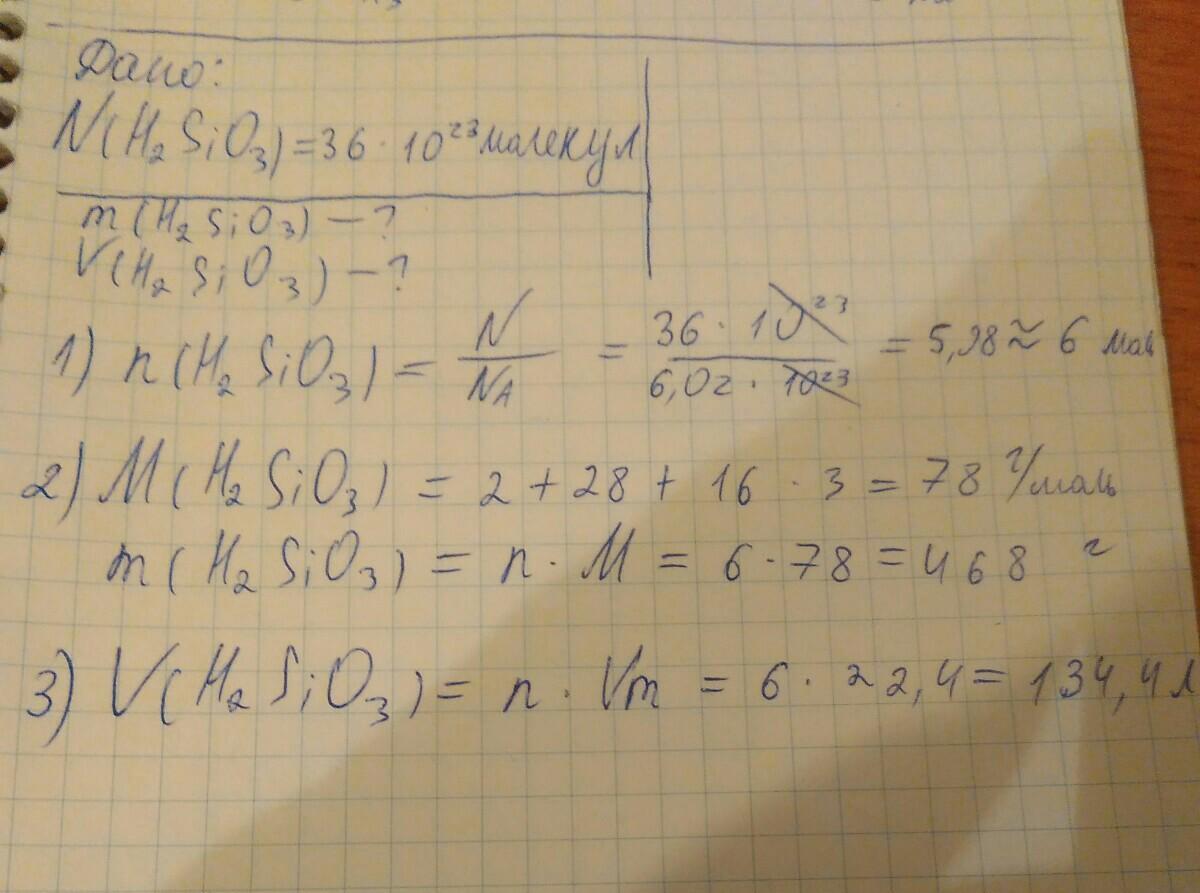 Дано:
N(H₂SiO₃) = 36 · 10²³ молекул
m(H₂SiO₃) – ?
V(H₂SiO₃) – ?
1) n(H₂SiO₃) = N/NA = 36 · 10²³ / 6,02 · 10²³ = 5,98 ≈ 6 моль
2) M(H₂SiO₃) = 2 + 28 + 16 · 3 = 78 г/моль
m(H₂SiO₃) = n · M = 6 · 78 = 468 г
3) V(H₂SiO₃) = n · Vm = 6 · 22,4 = 134,4 л